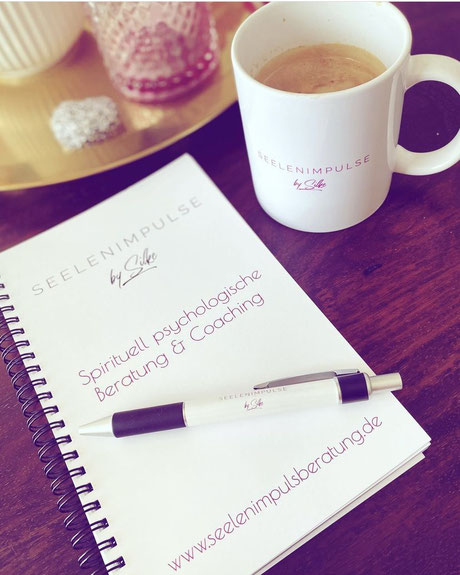 SEELENIMPULSE
by Silke
SEELENIMPULSE
by Silke
Spirituell psychologische
Beratung & Coaching
SEELENIMPULSE
by Silke
www.seelenimpulsberatung.de